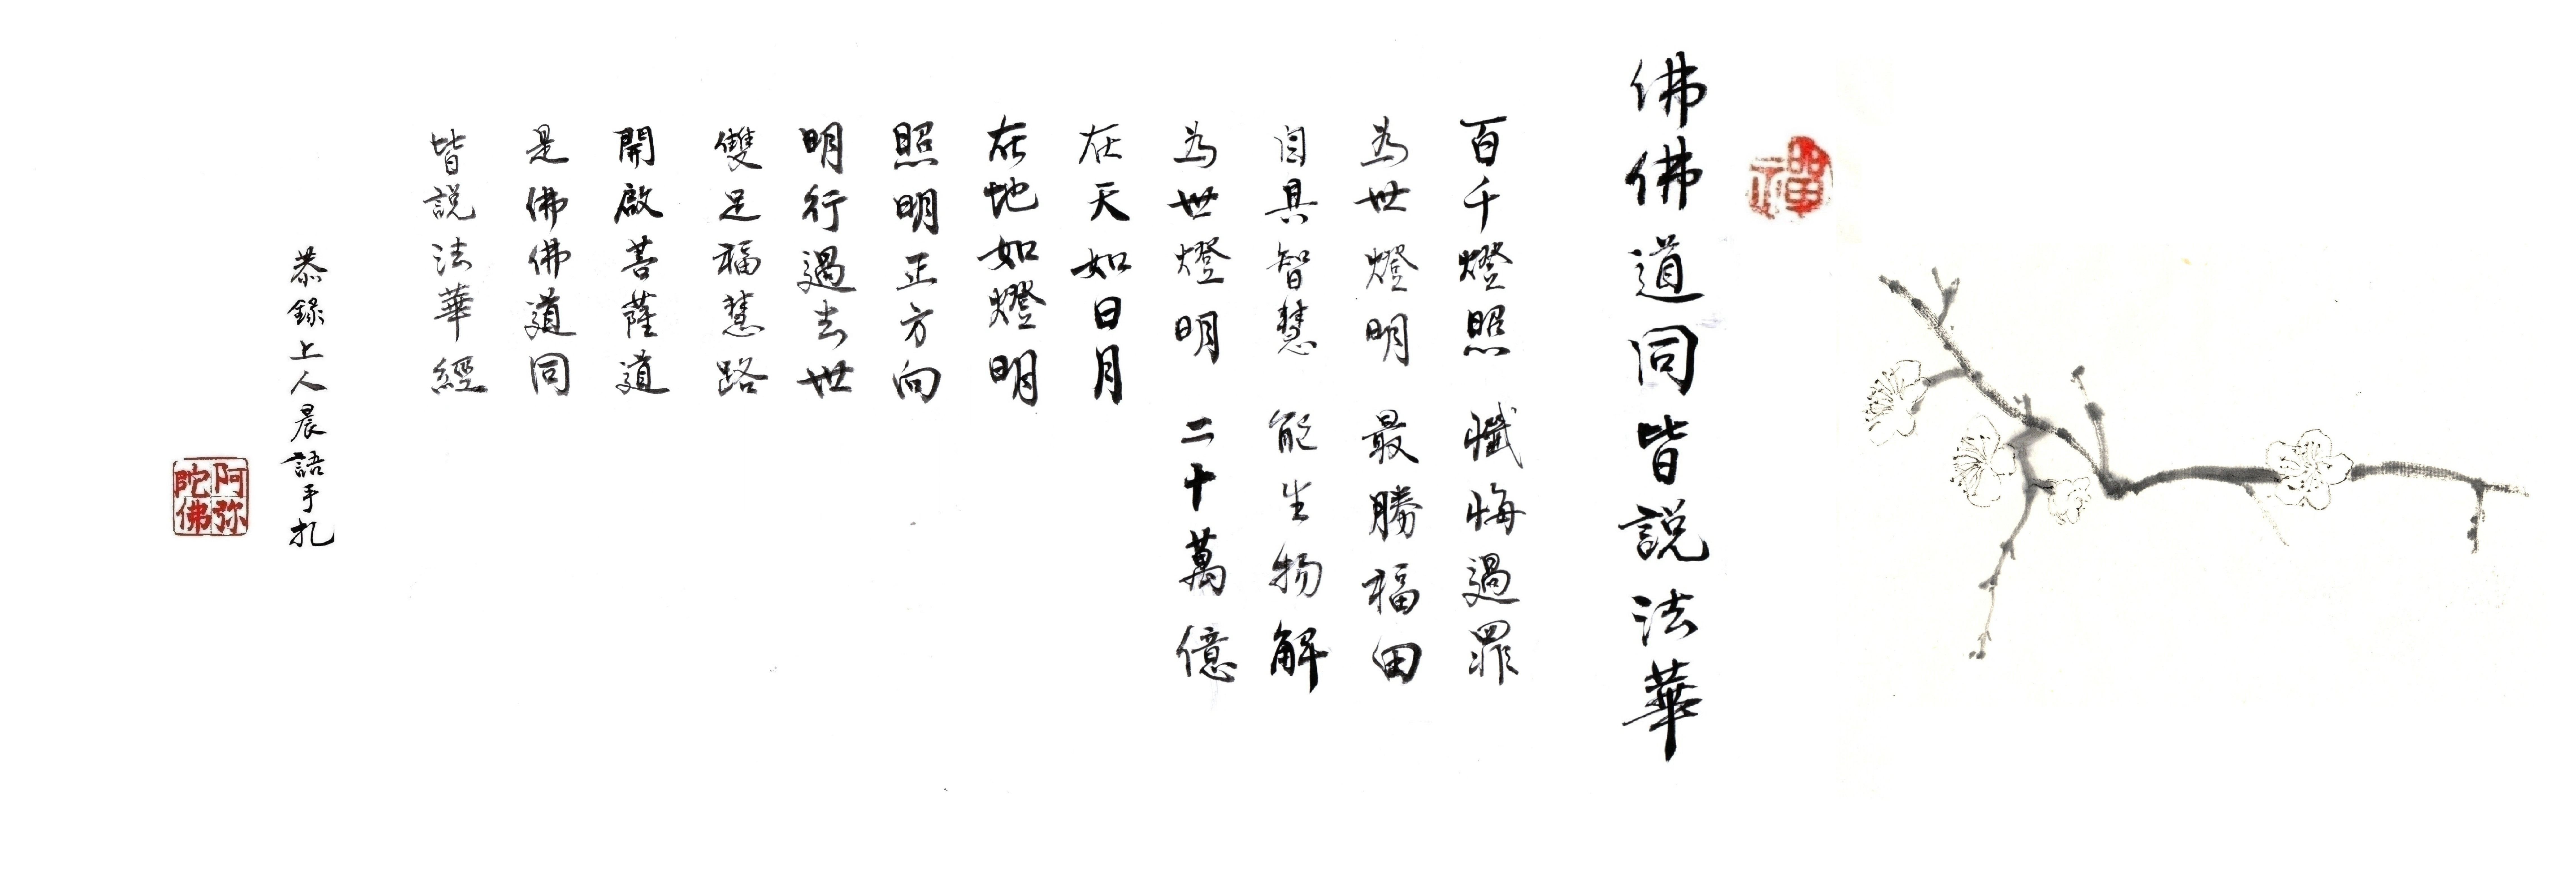 禪
佛佛道同皆說法華
百千燈照 懺悔過罪
為世燈明 最勝福田
自具智慧 能生物解
為世燈明 二十萬億
在天如日月
在地如燈明
照明正方向
明行過去世
雙足福慧路
開啟菩薩道
是佛佛道同
皆說法華經
恭錄上人晨語手札
阿弥陀佛